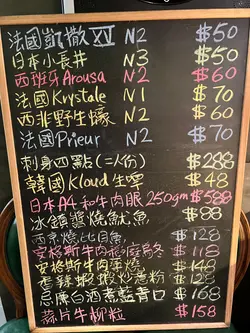 法國凱撒XV N2 $50
日本小長井 N3 $50
西班牙Arousa N2 $60
法國Krystale N1 $70
西非野生蠔 N2 $60
法國Prieur N2 $70
刺身四點(二人份) $288
韓國Kloud生啤 $48
日本A4和牛肉眼250gm $588
冰鎮醬燒魷魚 $88
西京燒比目魚 $128
安格斯牛肉 烏冬 $118
安格斯牛肉 $148
香辣蝦 炒 麵 $128
忌廉白酒煮藍青口 $168
蒜片牛柳粒 $158